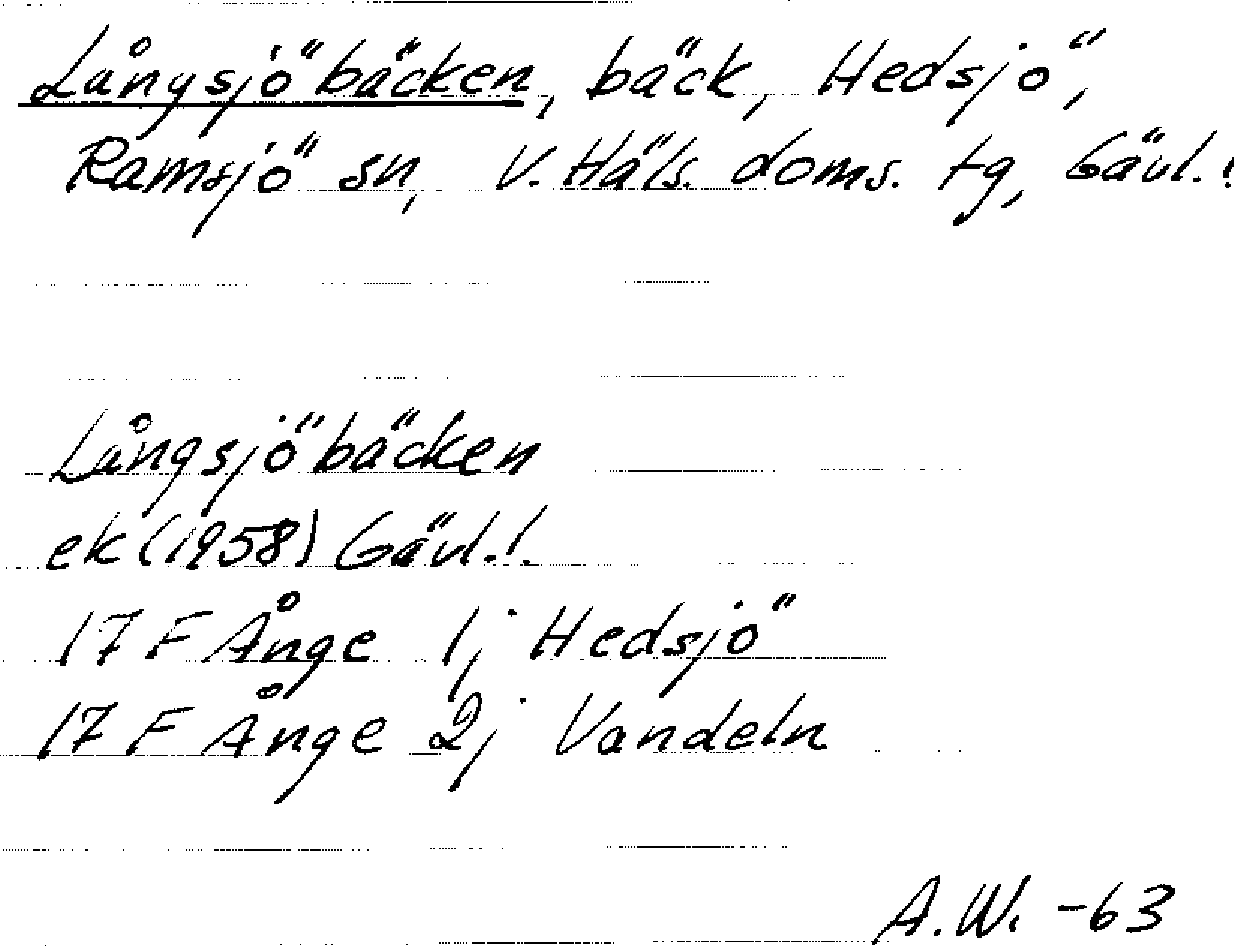 Långsjöbäcken, bäck, Hedsjö,
Ramsjö sn, V. Häls. doms. tg, Gävl. l
Långsjöbäcken
ek (1958) Gävl. l.
17 F Ånge 1j Hedsjö
17 F Ånge 2j Vandeln
A.W. -63